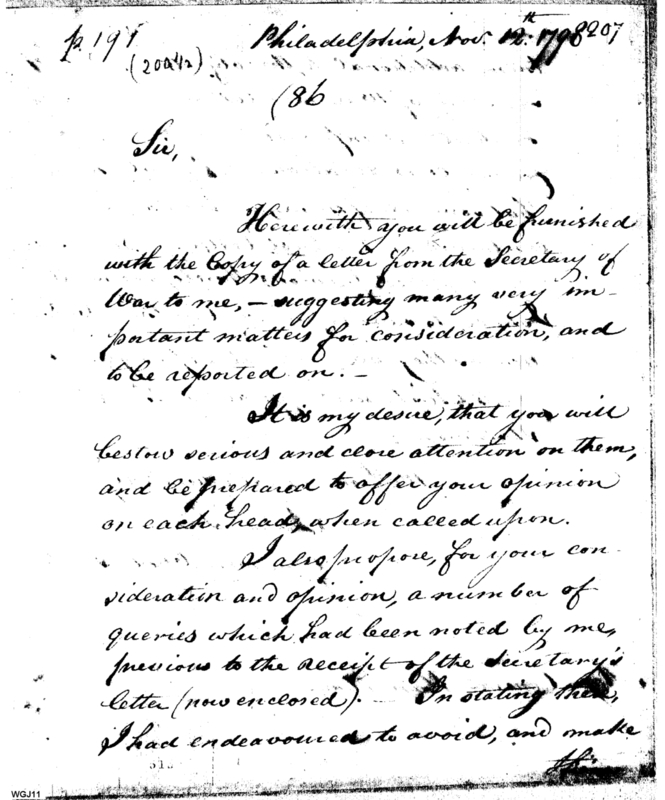 p. 191 Philadelphia, Nov. 12th. 1798 207
(20942)
(86
Sir,
Herewith you will be furnished
with the Copy of a letter from the Secretary of
War to me, – suggesting many very im-
portant matters for consideration, and
to be reported on. –
It is my desire, that you will
bestow serious and close attention on them,
and be prepared to offer your opinion
on each head, when called upon.
I also propose, for your con-
sideration and opinion, a number of
queries which had been noted by me,
previous to the receipt of the Secretary's
letter (now enclosed). – In stating these,
I had endeavoured to avoid, and make
WGJ11